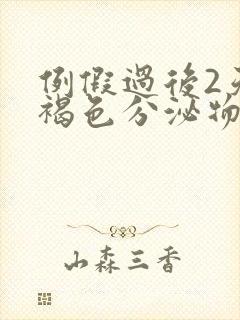 例假過後2天
褐色分泌物
山森三香